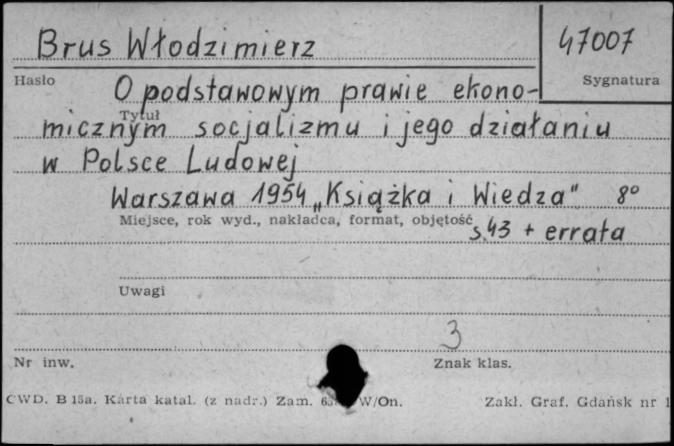 Brus Włodzimierz
47007
Hasło
Sygnatura
O podstawowym prawie ekono-
Tytuł
micznym socjalizmu i jego działaniu
w Polsce Ludowej
Warszawa 1954 „Książka i Wiedza" 8°
Miejsce, rok wyd., nakładca, format, objętość
s.43 + errata
Uwagi
3
Nr inw.
Znak klas.
CWD. B 15a. Karta katal. (z nadr.) Zam. W/On.
Zakł. Graf. Gdańsk nr 1